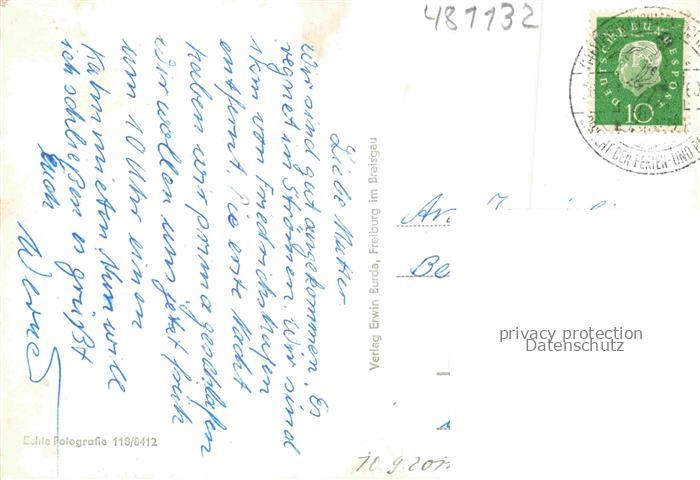 481132
DEUTSCHE BUNDESPOST
10
FERIEN- UND
Liebe Mutter
Wir sind gut angekommen. Es
regnet in Strömen. Wir sind
1km von Friedrichshafen
entfernt. Die erste Nacht
haben wir prima geschlafen
Wir wollen uns jetzt früh
um 10 Uhr einen
Kahn mieten. Nun will
ich schließen es grüßt
Euch
Werner
Verlag Erwin Burda, Freiburg im Breisgau
Echte Fotografie 118/8412
privacy protection
Datenschutz